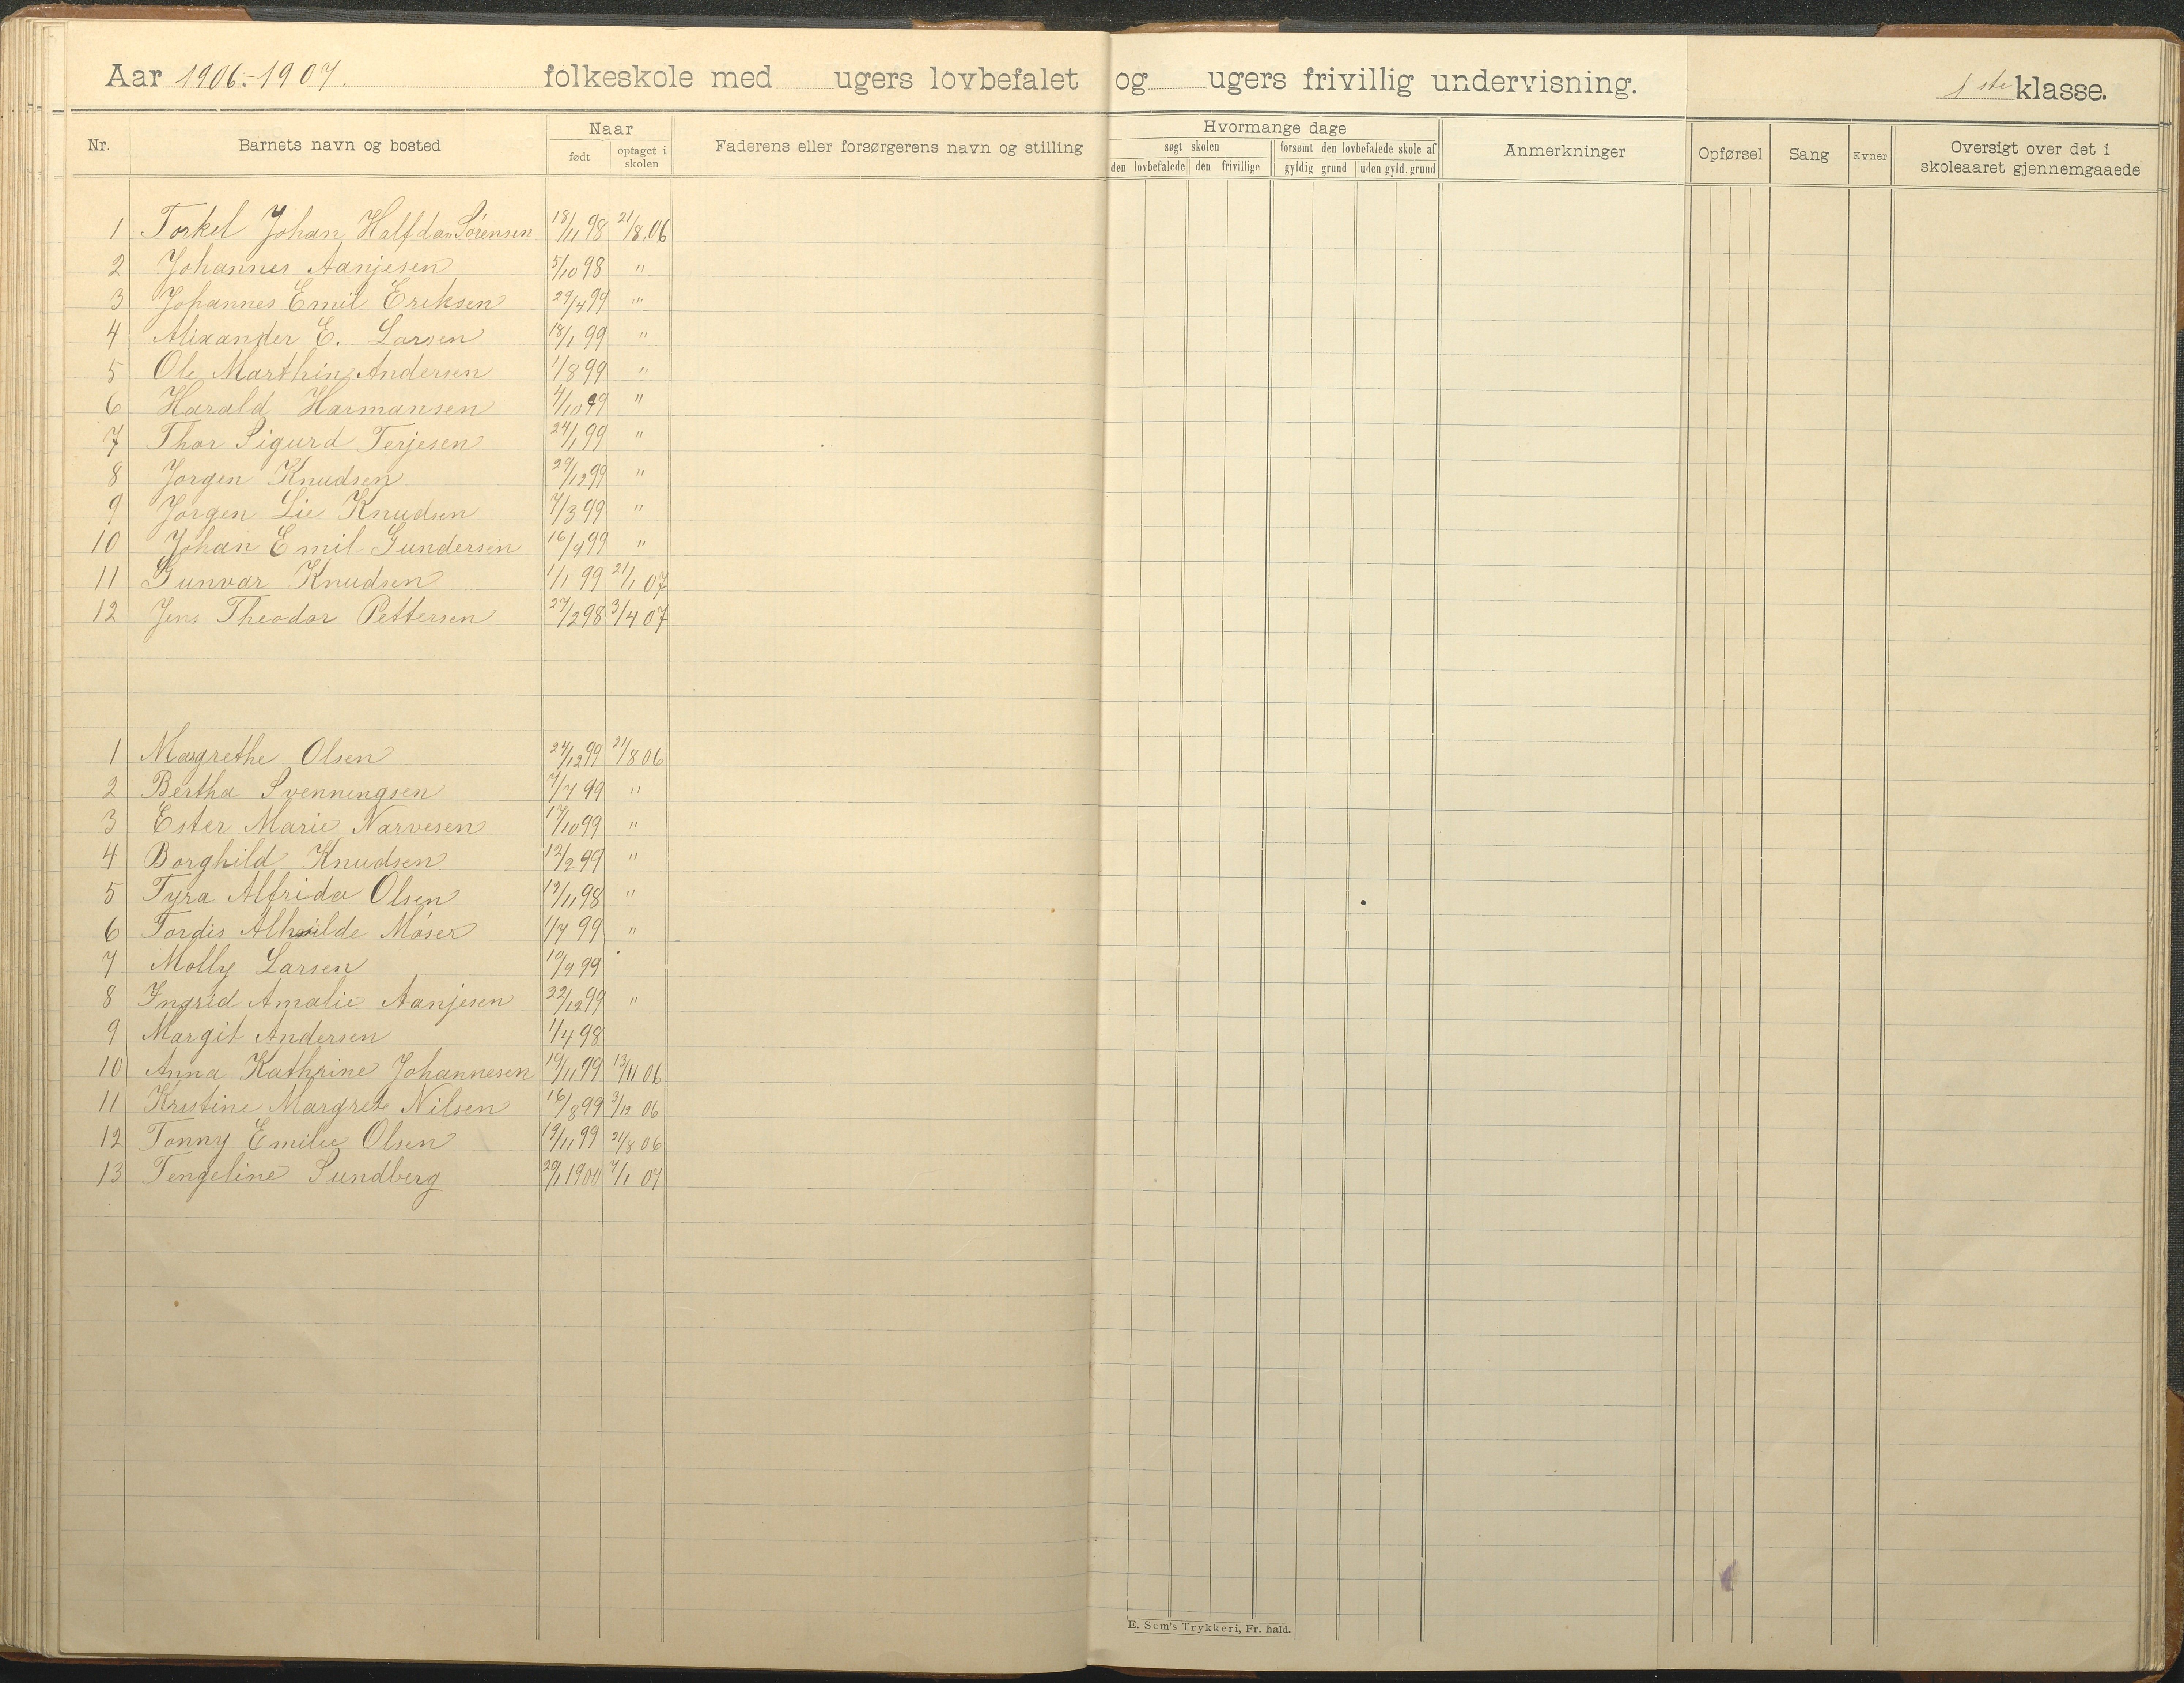 Aar 1906-1907. folkeskole med ugers lovbefalet og ugers frivillig undervisning. 1ste klasse.
Nr. Barnets navn og bosted Naar født optaget i skolen Faderens eller forsørgerens navn og stilling Hvormange dage søgt skolen den lovbefalede den frivillige forsømt den lovbefalede skole af gyldig grund uden gyld. grund Anmerkninger Opførsel Sang Evner Oversigt over det i skoleaaret gjennemgaaede
1 Torkel Johan Halfdan Sørensen 18/11 98 21/8.06
2 Johannes Aanjesen 5/10 98 "
3 Johannes Emil Eriksen 29/4 99 "
4 Alixander E. Larsen 18/1 99 "
5 Ole Marthin Andersen 1/8 99 "
6 Harald Harmansen 4/10 99 "
7 Thor Sigurd Terjesen 24/1 99 "
8 Jørgen Knudsen 29/12 99 "
9 Jørgen Lie Knudsen 7/3 99 "
10 Johan Emil Gundersen 16/9 99 "
11 Gunvar Knudsen 1/1 99 21/1 07
12 Jens Theodor Pettersen 27/2 98 3/4 07
1 Margrethe Olsen 24/12 99 21/8 06
2 Bertha Svenningsen 7/7 99 "
3 Ester Marie Narvesen 17/10 99 "
4 Borghild Knudsen 12/2 99 "
5 Tyra Alfrida Olsen 12/11 98 "
6 Tordis Alhvilde Møser 1/7 99 "
7 Molly Larsen 10/9 99 "
8 Ingrid Amalie Aanjesen 22/12 99 "
9 Margit Andersen 1/4 98
10 Anna Kathrine Johannesen 19/11 99 13/11 06
11 Kristine Margrete Nilsen 16/8 99 3/12 06
12 Tonny Emilie Olsen 19/11 99 21/8 06
13 Tengeline Sundberg 20/1 1900 7/1 07
E. Sem's Trykkeri, Fr. hald.